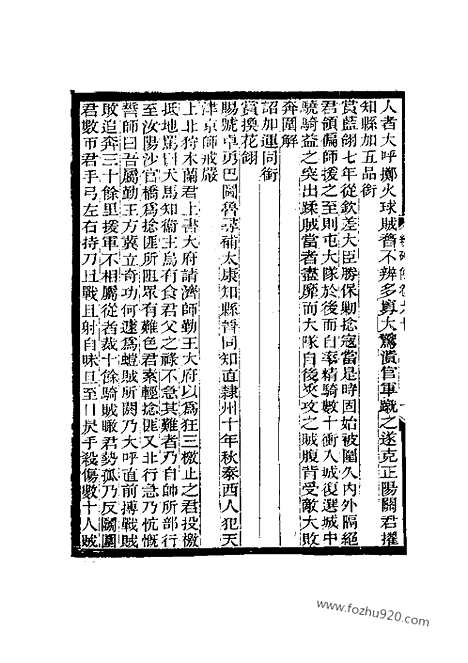 人者大呼擲火球賊瞀不辨多寡大驚潰官軍蹴之遂克正陽關君擢
知縣加五品銜
賞藍翎七年從欽差大臣勝保勦捻寇當是時固始被圍久內外隔絕
君領偏師援之至則屯大隊於後而自率精騎數十衝入城復選城中
驍騎益之突出蹂賊當者盡靡而大隊自後夾攻之賊腹背受敵大敗
奔圍解
詔加運同銜
賞換花翎
賜號卓勇巴圖魯尋補太康知縣晉同知直隸州十年秋泰西人犯天
津京師戒嚴
上北狩木蘭君上書大府請濟師勤王大府以爲狂三檄止之君投檄
抵地罵曰犬馬知衞主烏有食君父之祿不急其難者乃自帥所部行
至汝陽沙官橋爲捻匪所阻眾有難色君素輕捻匪又北行急乃忼慨
誓師曰吾屬勤王方冀立奇功何遽爲螘賊所閼乃大呼直前搏戰賊
敗追奔三十餘里援軍不相屬從者裁十餘騎賊瞰君勢孤乃反鬭圍
君數帀君手弓左右持刀且戰且射自昧旦至日昃手殺傷數十人賊
www.fozhu920.com